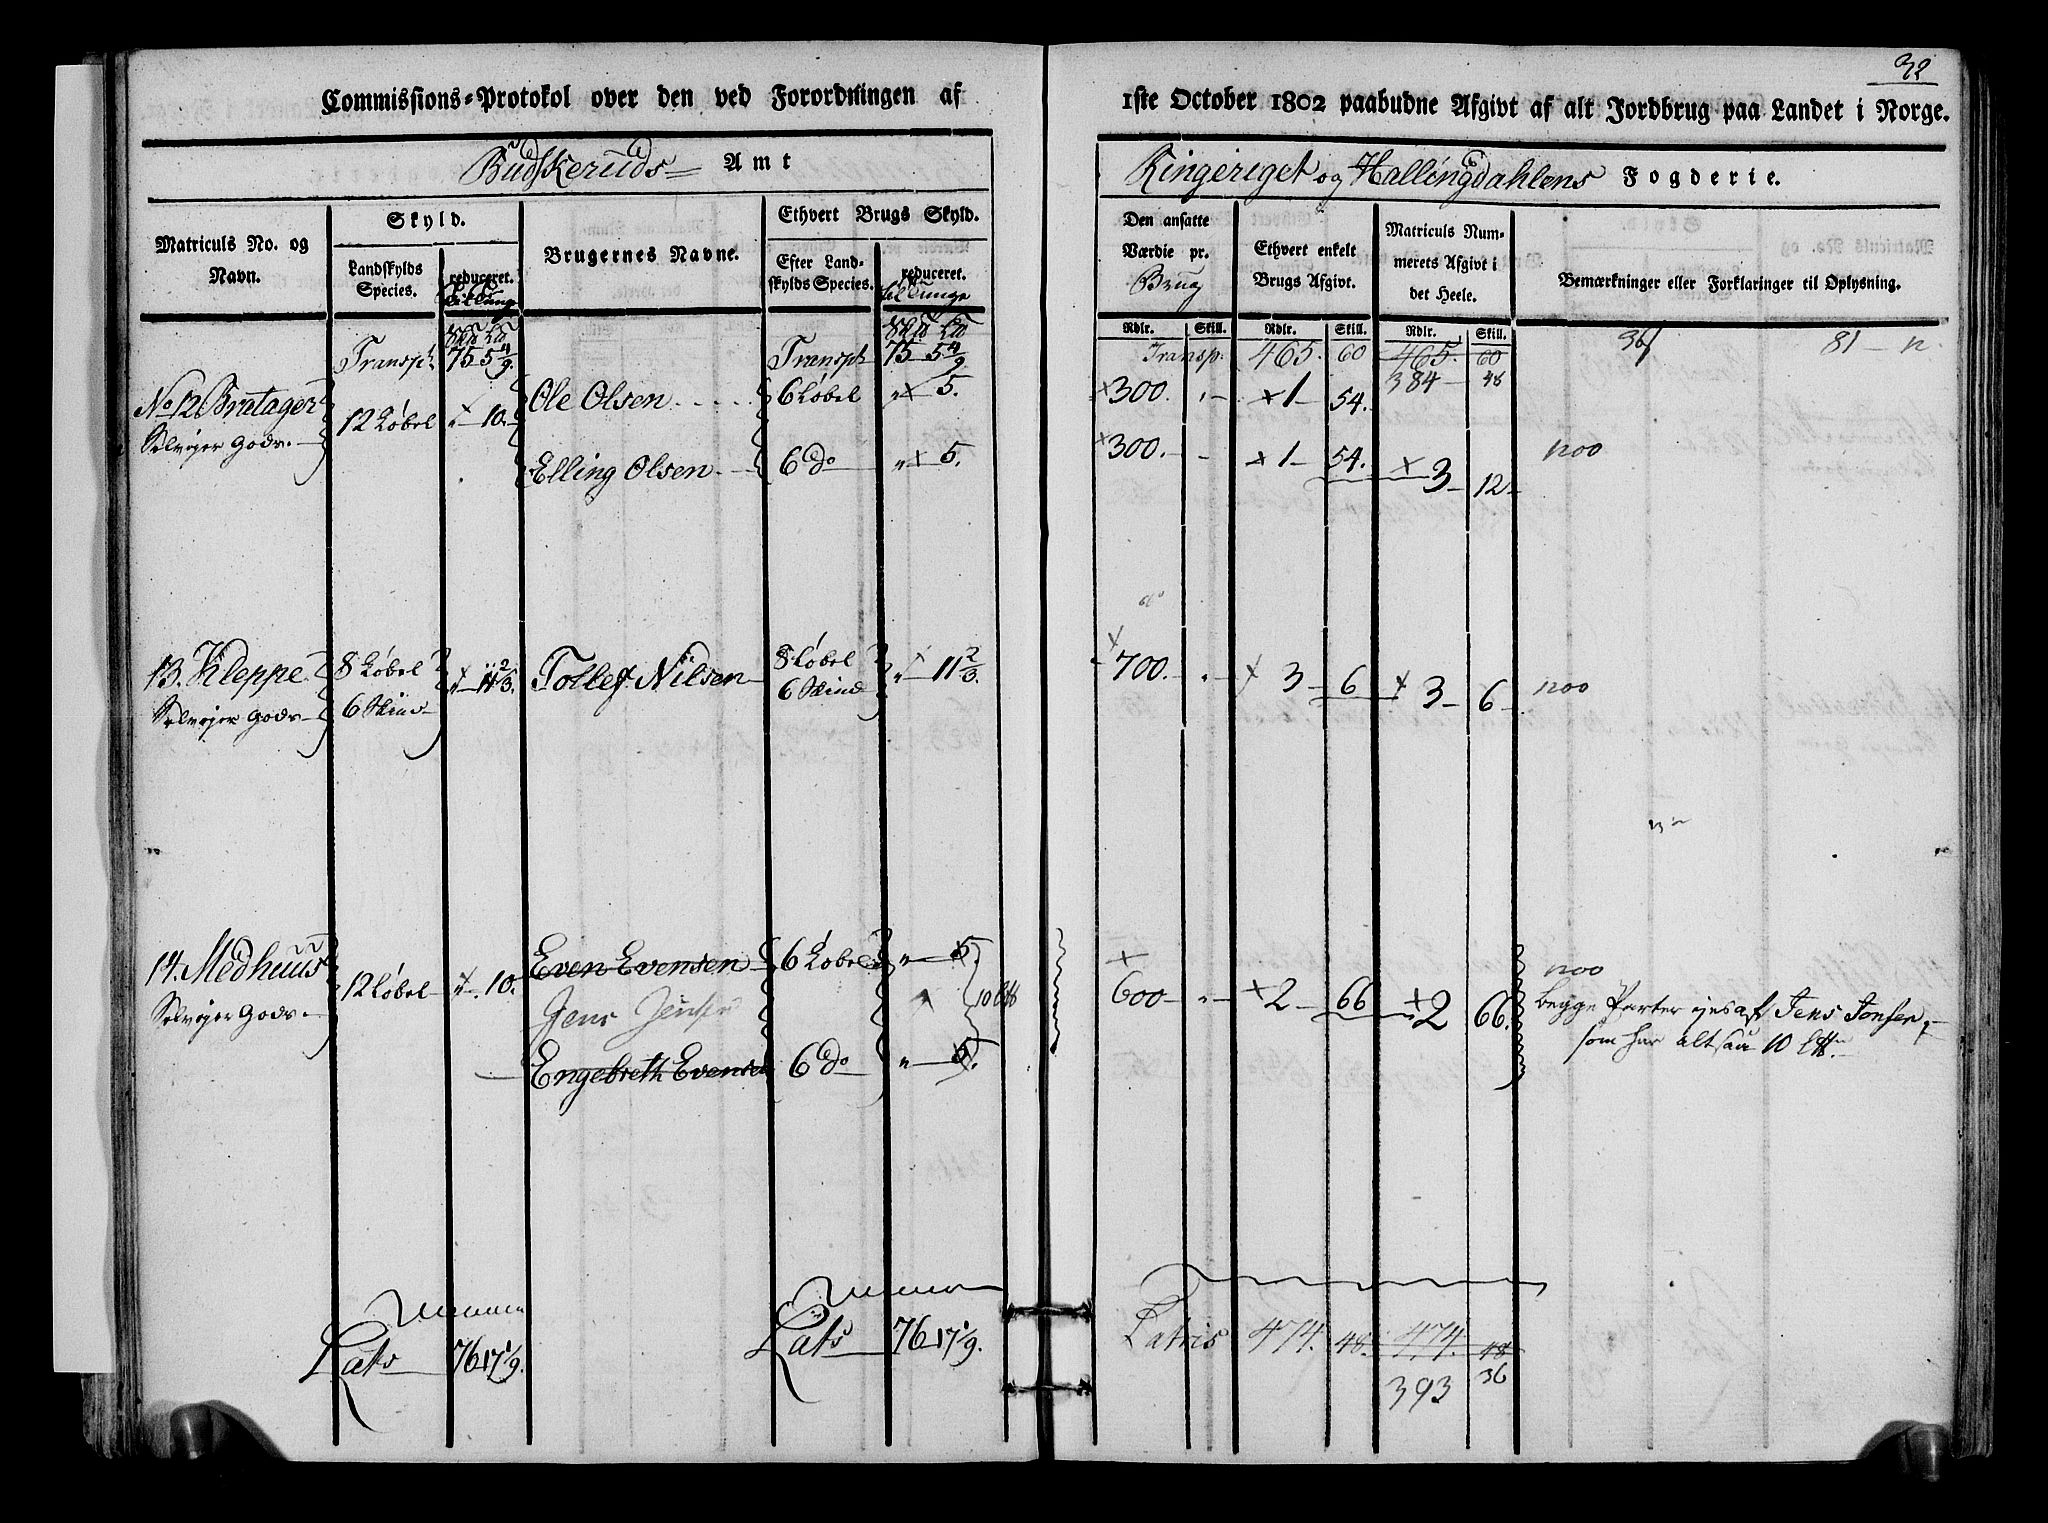 32
Commissions=Protokol over den ved Forordningen af
1ste October 1802 paabudne Afgivt af alt Jordbrug paa Landet i Norge.
Budskeruds Amt
Ringeriget og Hallingdahlens Fogderie.
Matriculs No. og Navn.
Skyld.
Landskylds Species.
reduceret.
Brugernes Navne.
Ethvert Brugs Skyld.
Efter Landskylds Species.
reduceret.
Den ansatte Værdie pr. Brug
Ethvert enkelt Brugs Afgivt.
Matriculs Nummerets Afgivt i det Heele.
Bemærkninger eller Forklaringer til Oplysning.
Rdlr. Skill. Rdlr. Skill. Rdlr. Skill.
Transpt 75 5 4/9 Transpt 75 5 4/9 Transp: 465. 60 465. 60 36 81
384 48
No 12 Bratager 12 Løbel " 10. Ole Olsen 6 Løbel " 5. 300. " 1 54.
Selveyer Gods.
Elling Olsen 6 do " 5. 300. 1 54. 3 12
13. Kleppe 8 Løbel " 11 2/3. Tollef Nilsen 8 Løbel " 11 2/3. 700. " 3 6 3 6
Selveyer Gods 6 Skind 6 Skind
14. Medhuus 12 Løbel " 10. Even Evensen 6 Løbel " 5. 600 " 2 66 2 66.
Selveyer Gods. Jens Jensen 10
Begge Parter ejes af Jens Jonsen,
som har altsaa 10
Engebreth Evensen 6 do " 5.
Lats 76 17 1/9. Lats 76 17 1/9. Latris 474. 48. 474. 48
393 36